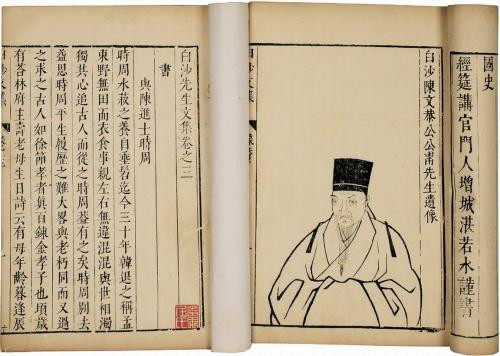 國史
經筵講官門人增城湛若水謹書
白沙陳文恭公公甫先生遺像
白沙文集
白沙先生文集卷之三
書
與陳進士時周
時周水菽之養自垂髫迄今三十年韓退之稱孟
東野無田而衣食事親左右無違混混與世相濁
獨其心追古人而從之時周蓋有之矣時周別去
益思時周平生履歷之難大畧與老朽同而又過
之求之古人如徐節孝者真百鍊金孝子也頃歲
有荅林府主壽老母生日詩云有母年齡暮逢辰
白沙文集
卷之三